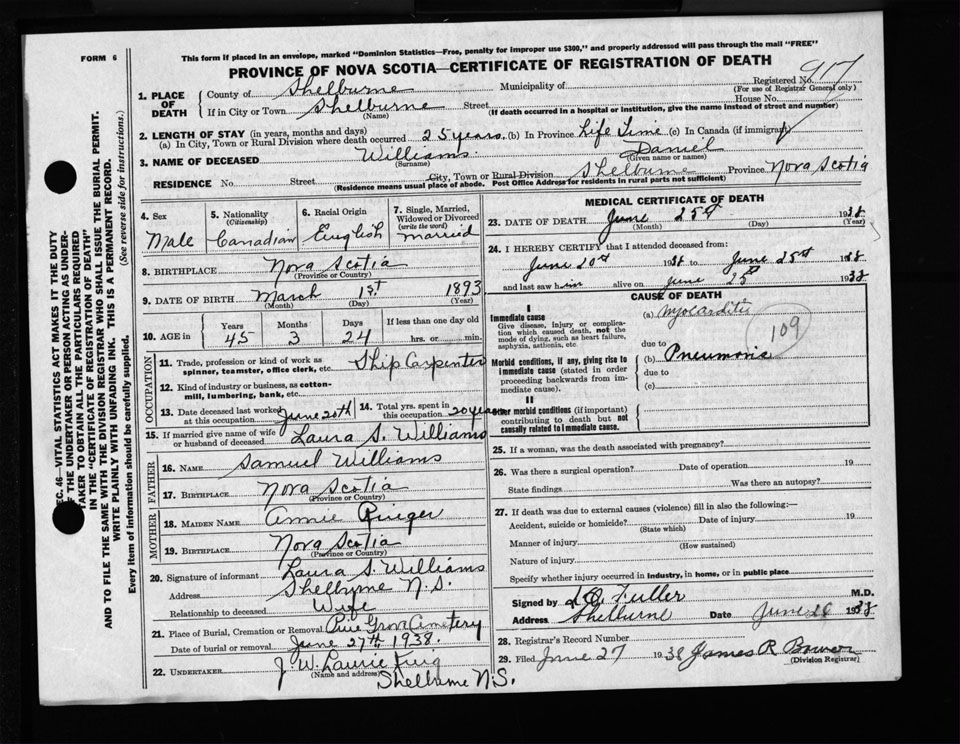 FORM 6
This form if placed in an envelope, marked "Dominion Statistics—Free, penalty for improper use $300," and properly addressed will pass through the mail "FREE"
PROVINCE OF NOVA SCOTIA—CERTIFICATE OF REGISTRATION OF DEATH
Registered No. 917
(For use of Registrar General only)
1. PLACE OF DEATH
County of Shelburne Municipality of
If in City or Town Shelburne Street House No.
(Name) (If death occurred in a hospital or institution, give the name instead of street and number)
2. LENGTH OF STAY (in years, months and days)
(a) In City, Town or Rural Division where death occurred 25 years (b) In Province Life Time (c) In Canada (if immigrant)
3. NAME OF DECEASED Williams Daniel
(Surname) (Given name or names)
RESIDENCE No. Street City, Town or Rural Division Shelburne Province Nova Scotia
(Residence means usual place of abode. Post Office Address for residents in rural parts not sufficient)
4. Sex
Male
5. Nationality
(Citizenship)
Canadian
6. Racial Origin
English
7. Single, Married, Widowed or Divorced
(write the word)
Married
8. BIRTHPLACE Nova Scotia
(Province or Country)
9. DATE OF BIRTH March 1st 1893
(Month) (Day) (Year)
10. AGE in
Years Months Days If less than one day old
45 3 24 hrs. or min.
OCCUPATION
11. Trade, profession or kind of work as spinner, teamster, office clerk, etc. Ship Carpenter
12. Kind of industry or business, as cotton-mill, lumbering, bank, etc.
13. Date deceased last worked at this occupation June 20th
14. Total yrs. spent in this occupation 20 years
15. If married give name of wife or husband of deceased Laura S. Williams
FATHER
16. NAME Samuel Williams
17. BIRTHPLACE Nova Scotia
(Province or Country)
MOTHER
18. MAIDEN NAME Annie Ringer
19. BIRTHPLACE Nova Scotia
(Province or Country)
20. Signature of informant Laura S. Williams
Address Shelburne N.S.
Relationship to deceased Wife
21. Place of Burial, Cremation or Removal Pine Grove Cemetery
Date of burial or removal June 27th, 1938.
22. UNDERTAKER J. W. Laurie King
(Name and address)
Shelburne N.S.
MEDICAL CERTIFICATE OF DEATH
23. DATE OF DEATH June 25th 1938
(Month) (Day) (Year)
24. I HEREBY CERTIFY that I attended deceased from:
June 20th 1938 to June 25th 1938
and last saw him alive on June 25th 1938
CAUSE OF DEATH
I
Immediate cause
Give disease, injury or complication which caused death, not the mode of dying, such as heart failure, asphyxia, asthenia, etc.
(a) Myocarditis
109
due to
Morbid conditions, if any, giving rise to immediate cause (stated in order proceeding backwards from immediate cause).
(b) Pneumonia
due to
(c)
II
Other morbid conditions (if important) contributing to death but not causally related to immediate cause.
25. If a woman, was the death associated with pregnancy?
26. Was there a surgical operation? Date of operation 19
State findings Was there an autopsy?
27. If death was due to external causes (violence) fill in also the following:—
Accident, suicide or homicide? Date of injury 19
(State which)
Manner of injury
(How sustained)
Nature of injury
Specify whether injury occurred in industry, in home, or in public place
Signed by Fuller M.D.
Address Shelburne Date June 1938
28. Registrar's Record Number
29. Filed June 27 1938 James R Bower
(Division Registrar)
SEC. 46—VITAL STATISTICS ACT MAKES IT THE DUTY
OF THE UNDERTAKER OR PERSON ACTING AS UNDER-
TAKER TO OBTAIN ALL THE PARTICULARS REQUIRED
IN THE "CERTIFICATE OF REGISTRATION OF DEATH"
AND TO FILE THE SAME WITH THE DIVISION REGISTRAR WHO SHALL ISSUE THE BURIAL PERMIT.
WRITE PLAINLY WITH UNFADING INK. THIS IS A PERMANENT RECORD.
Every item of information should be carefully supplied. (See reverse side for instructions.)